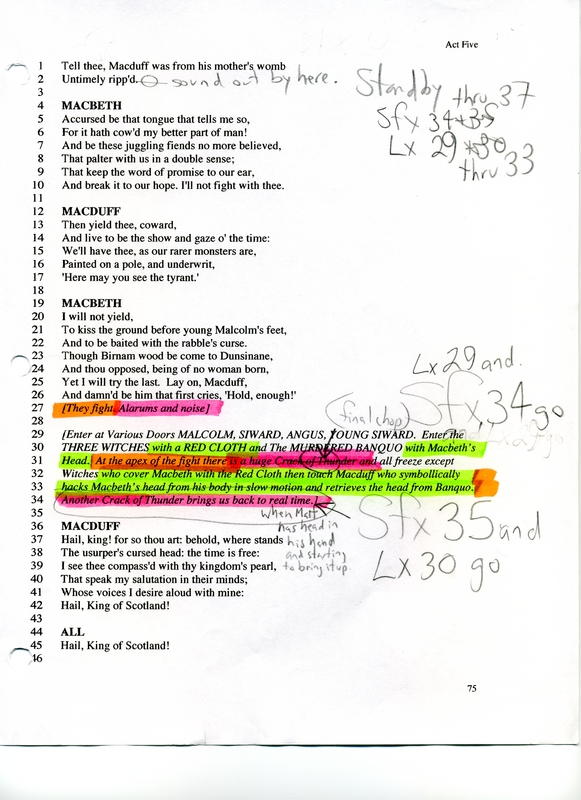 Act Five
1 Tell thee, Macduff was from his mother's womb
2 Untimely ripp'd. sound out by here.
Standby thru 37
Sfx 34+35
Lx 29+30
thru 33
3
4 MACBETH
5 Accursed be that tongue that tells me so,
6 For it hath cow'd my better part of man!
7 And be these juggling fiends no more believed,
8 That palter with us in a double sense;
9 That keep the word of promise to our ear,
10 And break it to our hope. I'll not fight with thee.
11
12 MACDUFF
13 Then yield thee, coward,
14 And live to be the show and gaze o' the time:
15 We'll have thee, as our rarer monsters are,
16 Painted on a pole, and underwrit,
17 'Here may you see the tyrant.'
18
19 MACBETH
20 I will not yield,
21 To kiss the ground before young Malcolm's feet,
22 And to be baited with the rabble's curse.
23 Though Birnam wood be come to Dunsinane,
24 And thou opposed, being of no woman born,
25 Yet I will try the last. Lay on, Macduff,
26 And damn'd be him that first cries, 'Hold, enough!'
Lx 29 and
Sfx 34 go
27 [They fight. Alarums and noise]
(final chop)
28
29 [Enter at Various Doors MALCOLM, SIWARD, ANGUS, YOUNG SIWARD. Enter the
30 THREE WITCHES with a RED CLOTH and The MURDERED BANQUO with Macbeth's
31 Head. At the apex of the fight there is a huge Crack of Thunder and all freeze except
32 Witches who cover Macbeth with the Red Cloth then touch Macduff who symbollically
33 hacks Macbeth's head from his body in slow motion and retrieves the head from Banquo.
34 Another Crack of Thunder brings us back to real time.]
when Matt
has head in
his hand
and starting
to bring it up.
Sfx 35 and
Lx 30 go
35
36 MACDUFF
37 Hail, king! for so thou art: behold, where stands
38 The usurper's cursed head: the time is free:
39 I see thee compass'd with thy kingdom's pearl,
40 That speak my salutation in their minds;
41 Whose voices I desire aloud with mine:
42 Hail, King of Scotland!
43
44 ALL
45 Hail, King of Scotland!
46
75